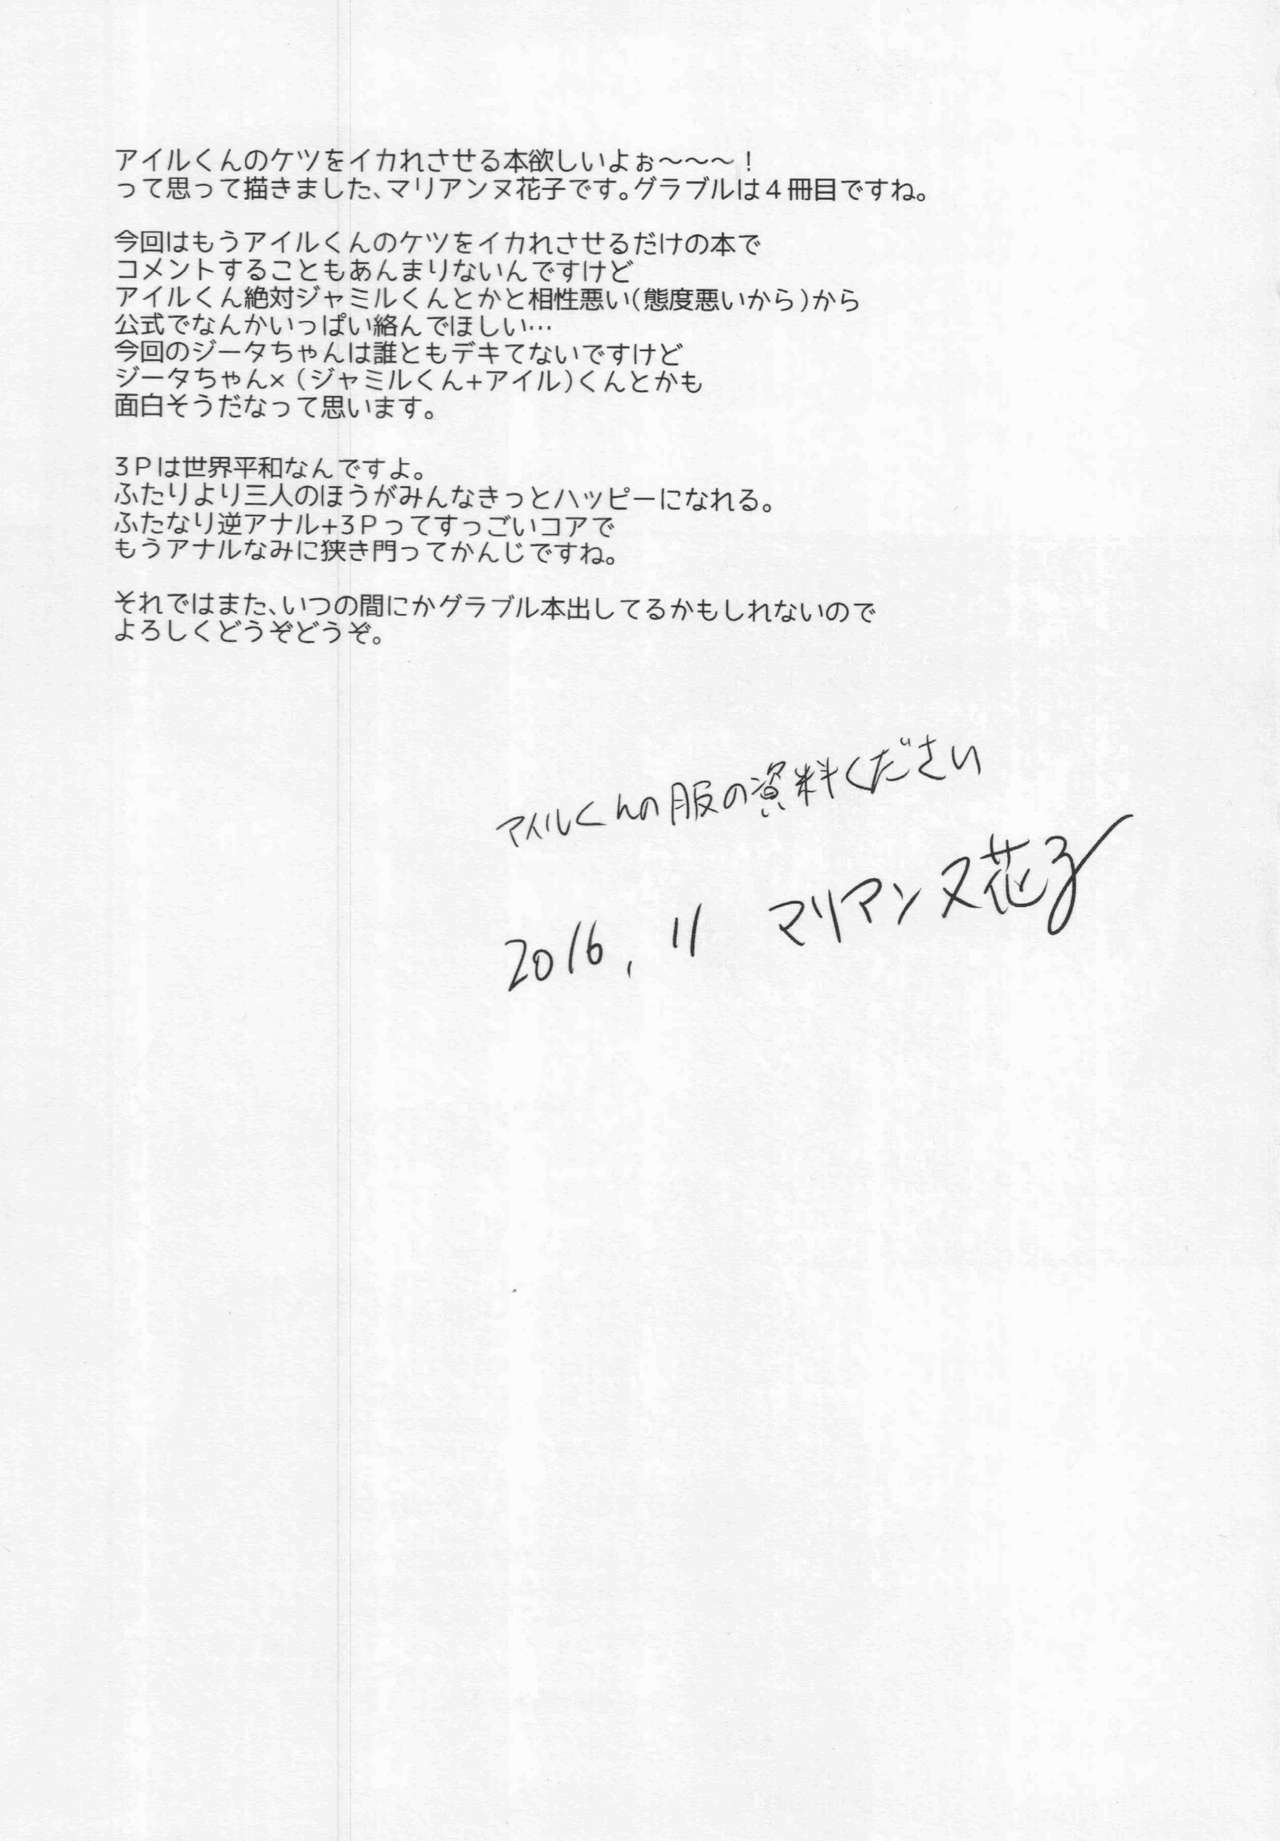 アイルくんのケツをイカれさせる本欲しいよぉ～～～！
って思って描きました、マリアンヌ花子です。グラブルは４冊目ですね。
今回はもうアイルくんのケツをイカれさせるだけの本で
コメントすることもあんまりないんですけど
アイルくん絶対ジャミルくんとかと相性悪い（態度悪いから）から
公式でなんかいっぱい絡んでほしい…
今回のジータちゃんは誰ともデキてないですけど
ジータちゃん×（ジャミルくん+アイル）くんとかも
面白そうだなって思います。
３Ｐは世界平和なんですよ。
ふたりより三人のほうがみんなきっとハッピーになれる。
ふたなり逆アナル+３Ｐってすっごいコアで
もうアナルなみに狭き門ってかんじですね。
それではまた、いつの間にかグラブル本出してるかもしれないので
よろしくどうぞどうぞ。
アイルくんの服の資料ください
2016.11 マリアンヌ花子